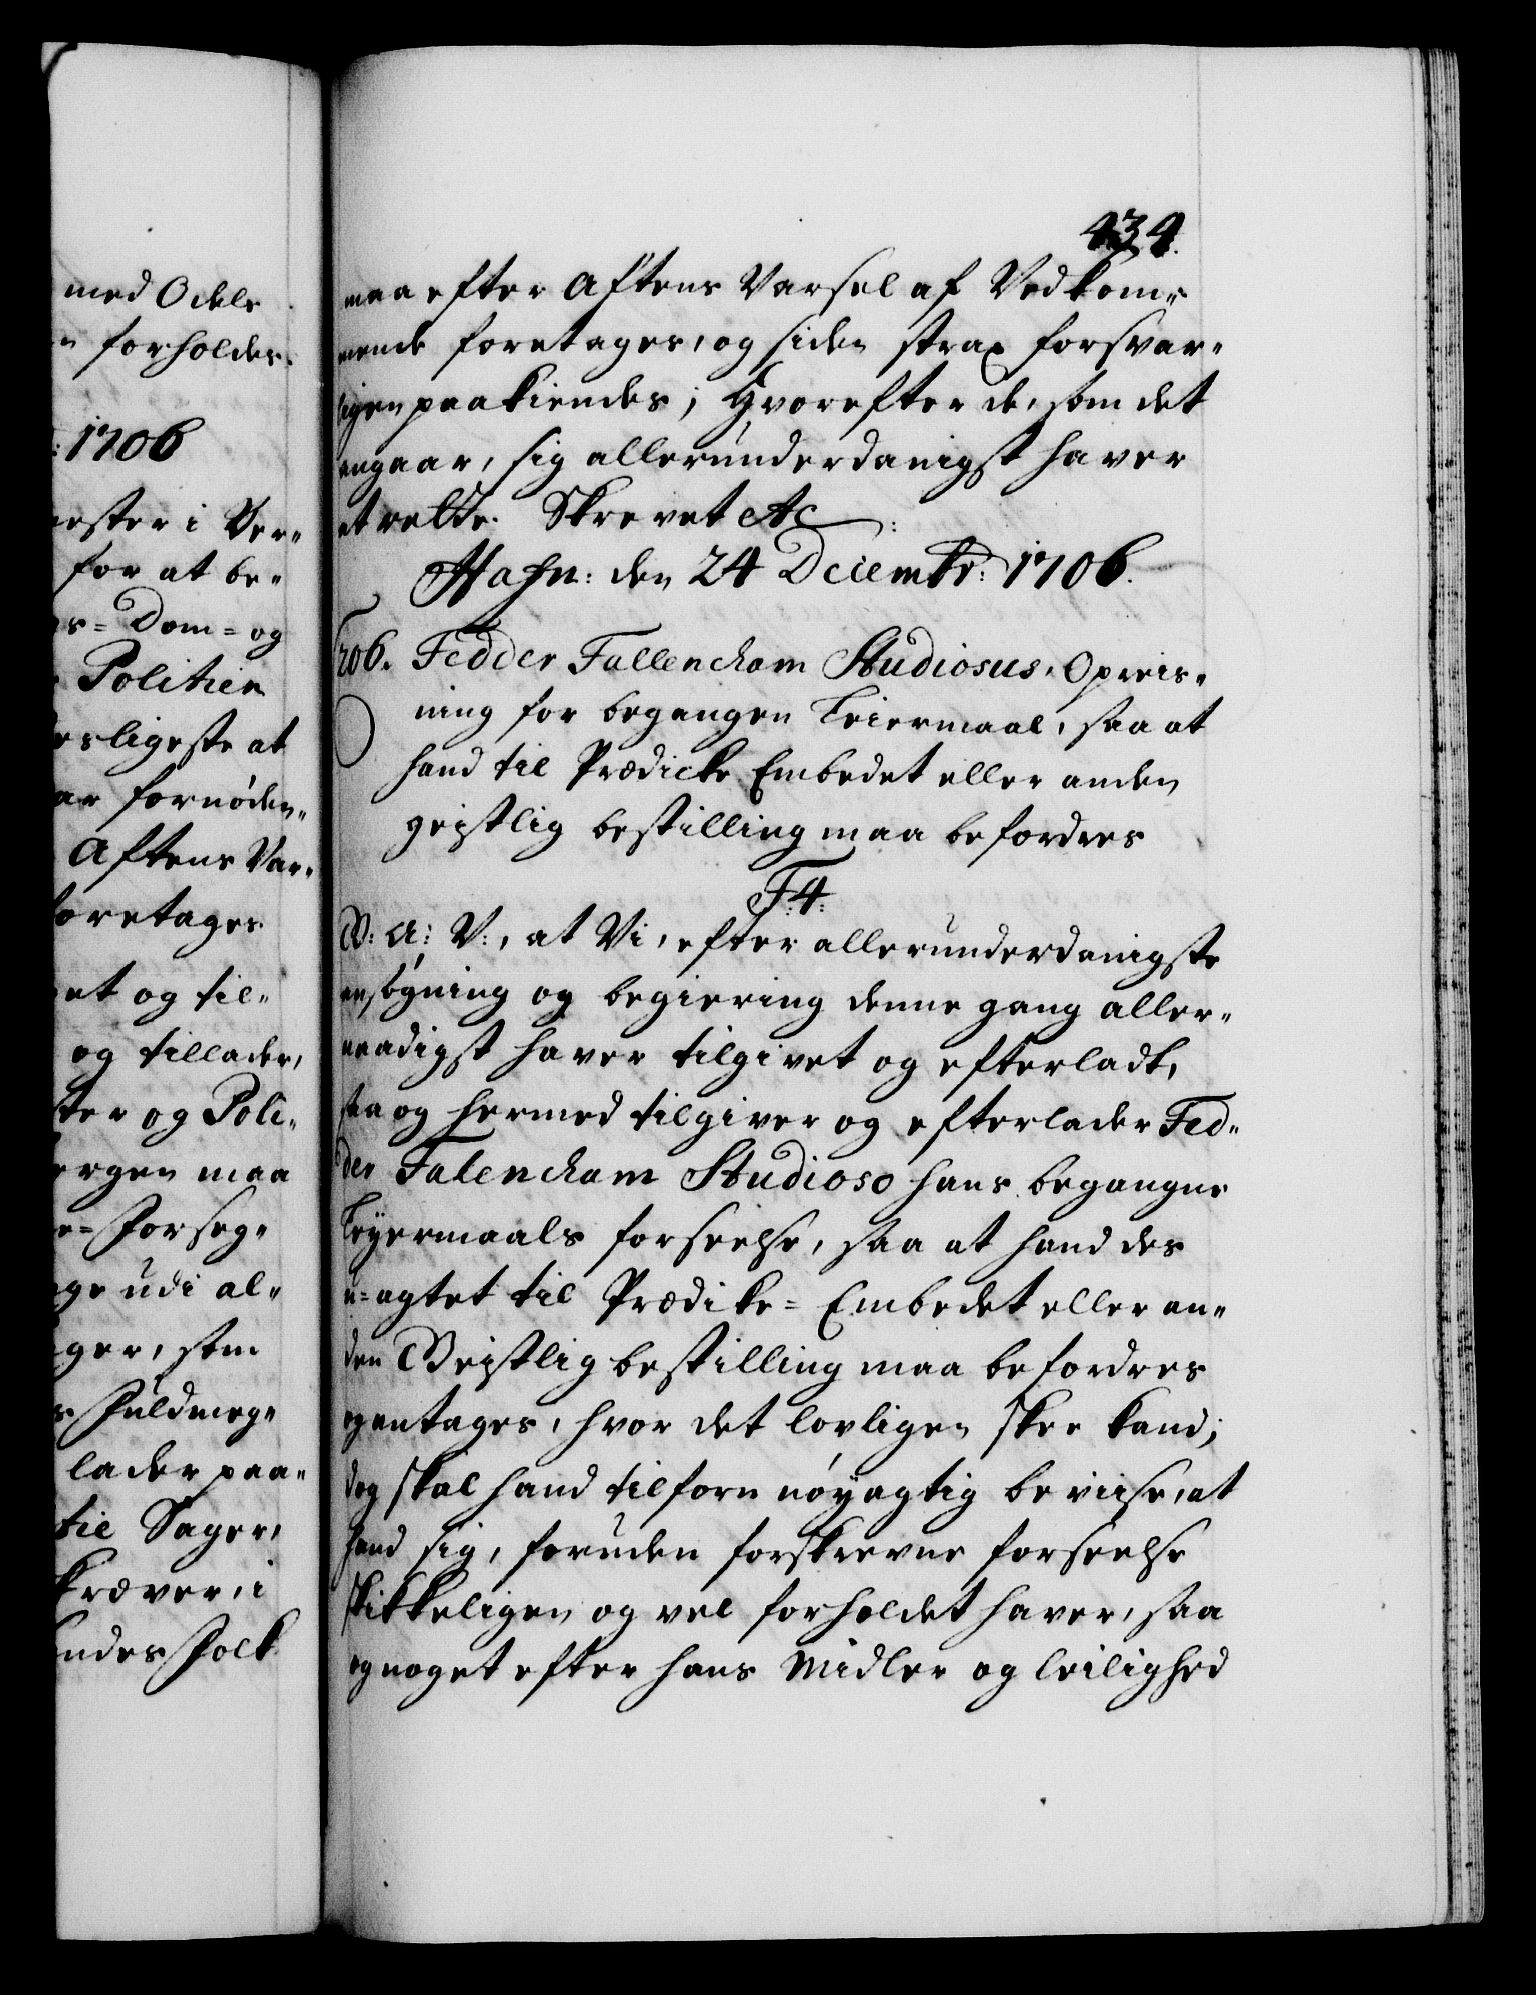 med Odels
forholdes.
: 1706
mester i Ber-
for at be-
Dom= og
Politien
desligeste at
fornöden-
Aftens Var-
foretages
et og til-
og tillader,
ter og Poli-
ergen maa
Forseg-
ge udi al-
ger, som
Fuldmeg-
lader paa-
til Sager,
kræver, i
Folk
434.
maa efter Aftens Varsel af Vedkom-
mende foretages, og siden strax forsvar-
ligen paakiendes; Hvorefter de, som det
angaar, sig allerunderdanigst haver
at rette. Skrevet etc:
Hafn: den 24 Decembr: 1706.
206. Fedder Fallencham Studiosus, Opreis-
ning for begangen Leiermaal, saa at
hand til Prædicke Embedet eller anden
geistlig bestilling maa befordres
F: 4:
G: A: V:, at Vi, efter allerunderdanigste
ansögning og begiering denne gang aller-
naadigst haver tilgivet og efterladt,
saa og hermed tilgiver og efterlader Fed-
der Falencham Studioso hans begangne
Leyermaals forseelse, saa at hand des
u-agtet til Prædike= Embedet eller an-
den Geistlig bestilling maa befordres
og antages, hvor det lovligen skee kand;
dog skal hand tilforn nöyagtig beviise, at
hand sig, foruden forskrevne forseelse
skikkeligen og vel forholdet haver, saa
og noget efter hans Midler og leilighed